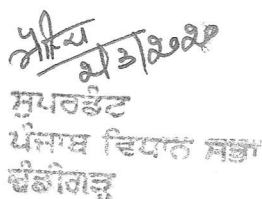 2/3/2020
ਸੁਪਰਡੰਟ
ਪੰਜਾਬ ਵਿਧਾਨ ਸਭਾ
ਚੰਡੀਗੜ੍ਹ